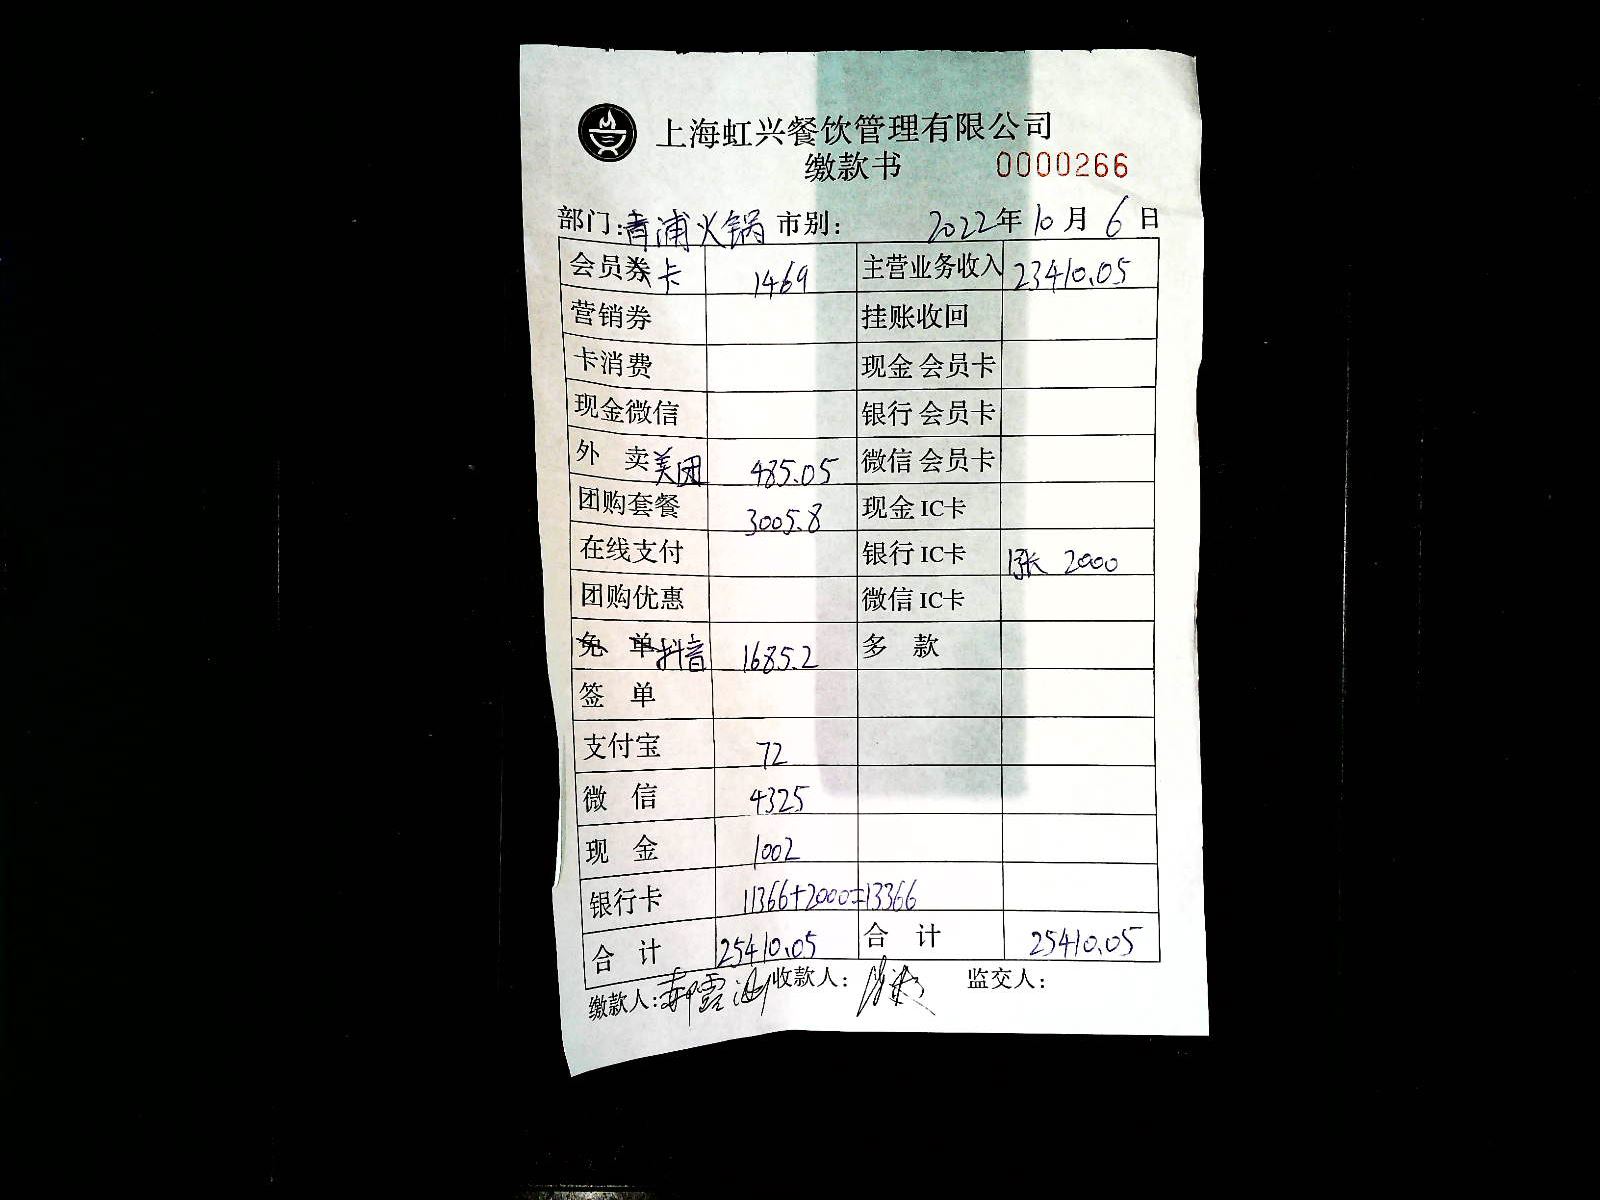 上海虹兴餐饮管理有限公司
缴款书 0000266
部门：青浦火锅 市别： 2022年10月6日
会员券卡 1469 主营业务收入 23410.05
营销券 挂账收回
卡消费 现金 会员卡
现金微信 银行 会员卡
外 卖美团 485.05 微信 会员卡
团购套餐 3005.8 现金 IC卡
在线支付 银行 IC卡 1张 2000
团购优惠 微信 IC卡
免 单抖音 1685.2 多 款
签 单
支付宝 72
微 信 4325
现 金 1002
银行卡 11366+2000=13366
合 计 25410.05 合 计 25410.05
缴款人： 收款人： 监交人：